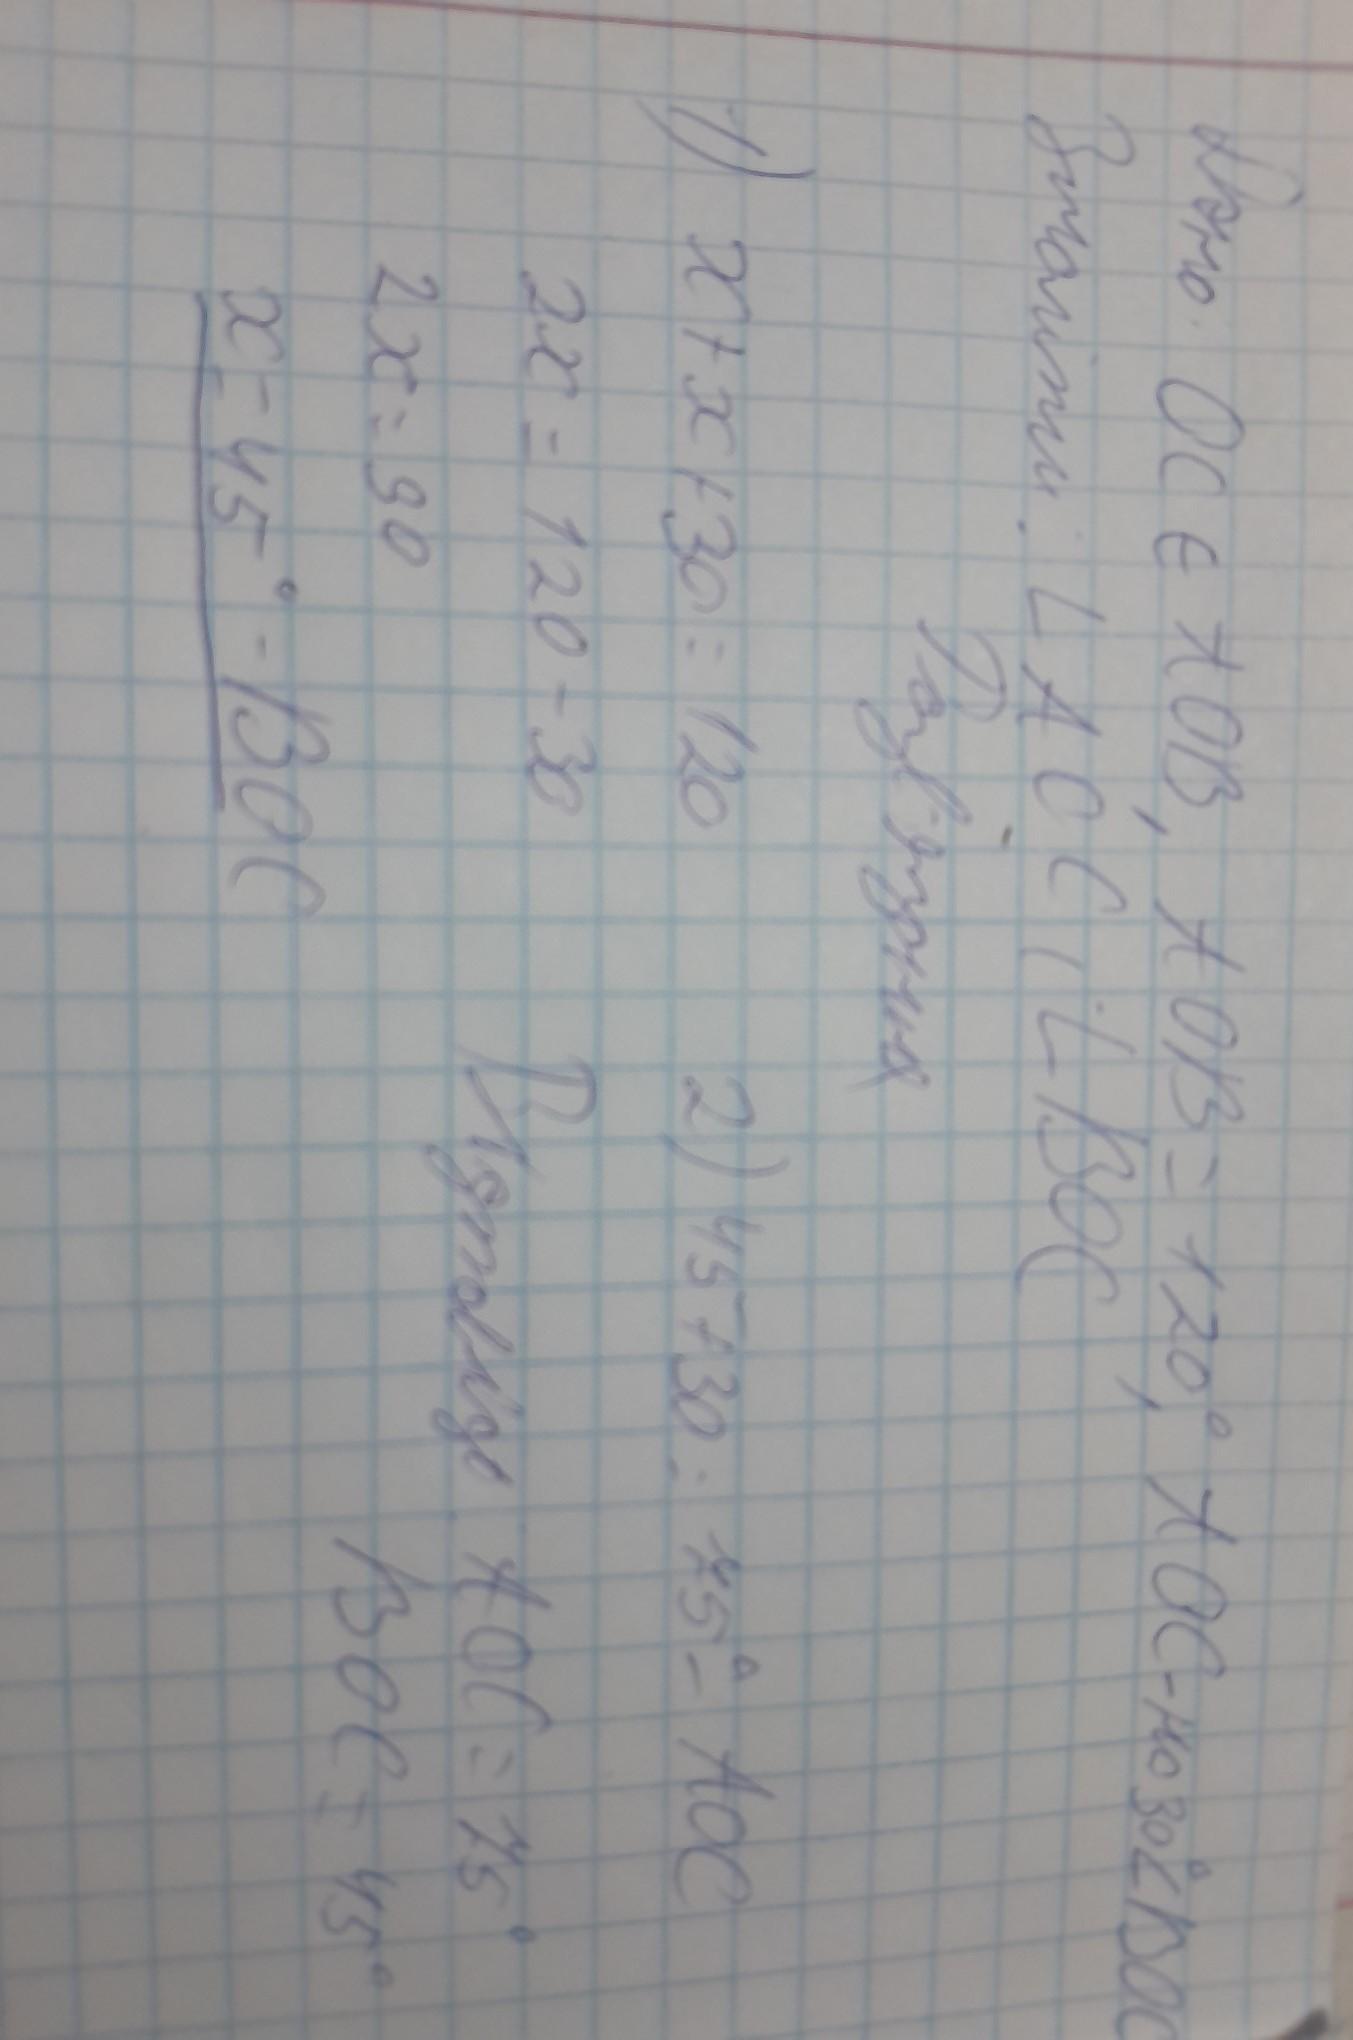 Дано: OC ∈ AOB, AOB = 120°, AOC - на 30° ∠ BOC
Знайти: ∠ AOC i ∠ BOC
Розв'язання
1) x + x + 30 = 120
2x = 120 - 30
2x = 90
x = 45° - BOC
2) 45 + 30 = 75° - AOC
Відповідь AOC = 75°
BOC = 45°